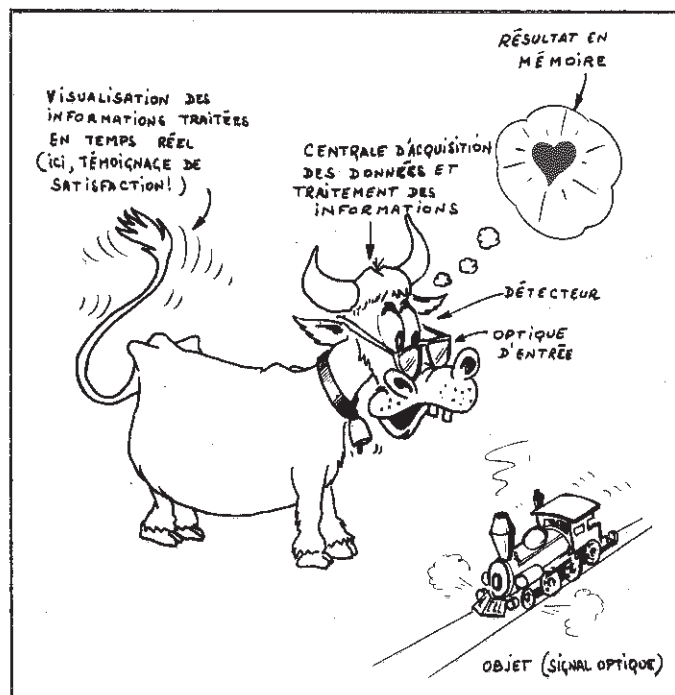 RÉSULTAT EN
MÉMOIRE
VISUALISATION DES
INFORMATIONS TRAITÉES
EN TEMPS RÉEL
(ICI, TÉMOIGNAGE DE
SATISFACTION!)
CENTRALE D'ACQUISITION
DES DONNÉES ET
TRAITEMENT DES
INFORMATIONS
DÉTECTEUR
OPTIQUE
D'ENTRÉE
OBJET (SIGNAL OPTIQUE)